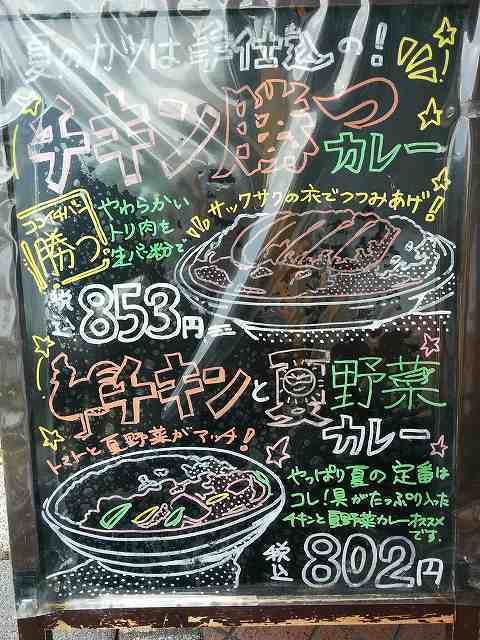 夏のカツは手仕込の!
チキン勝つ
カレー
ココイチバン
勝つ
やわらかい
トリ肉を
生パン粉で
サックサクの衣でつつみあげ!
税込853円
チキンと夏野菜
カレー
トマトと夏野菜がマッチ!
やっぱり夏の定番は
コレ!具がたっぷり入った
チキンと夏野菜カレーオススメ
です。
税込802円